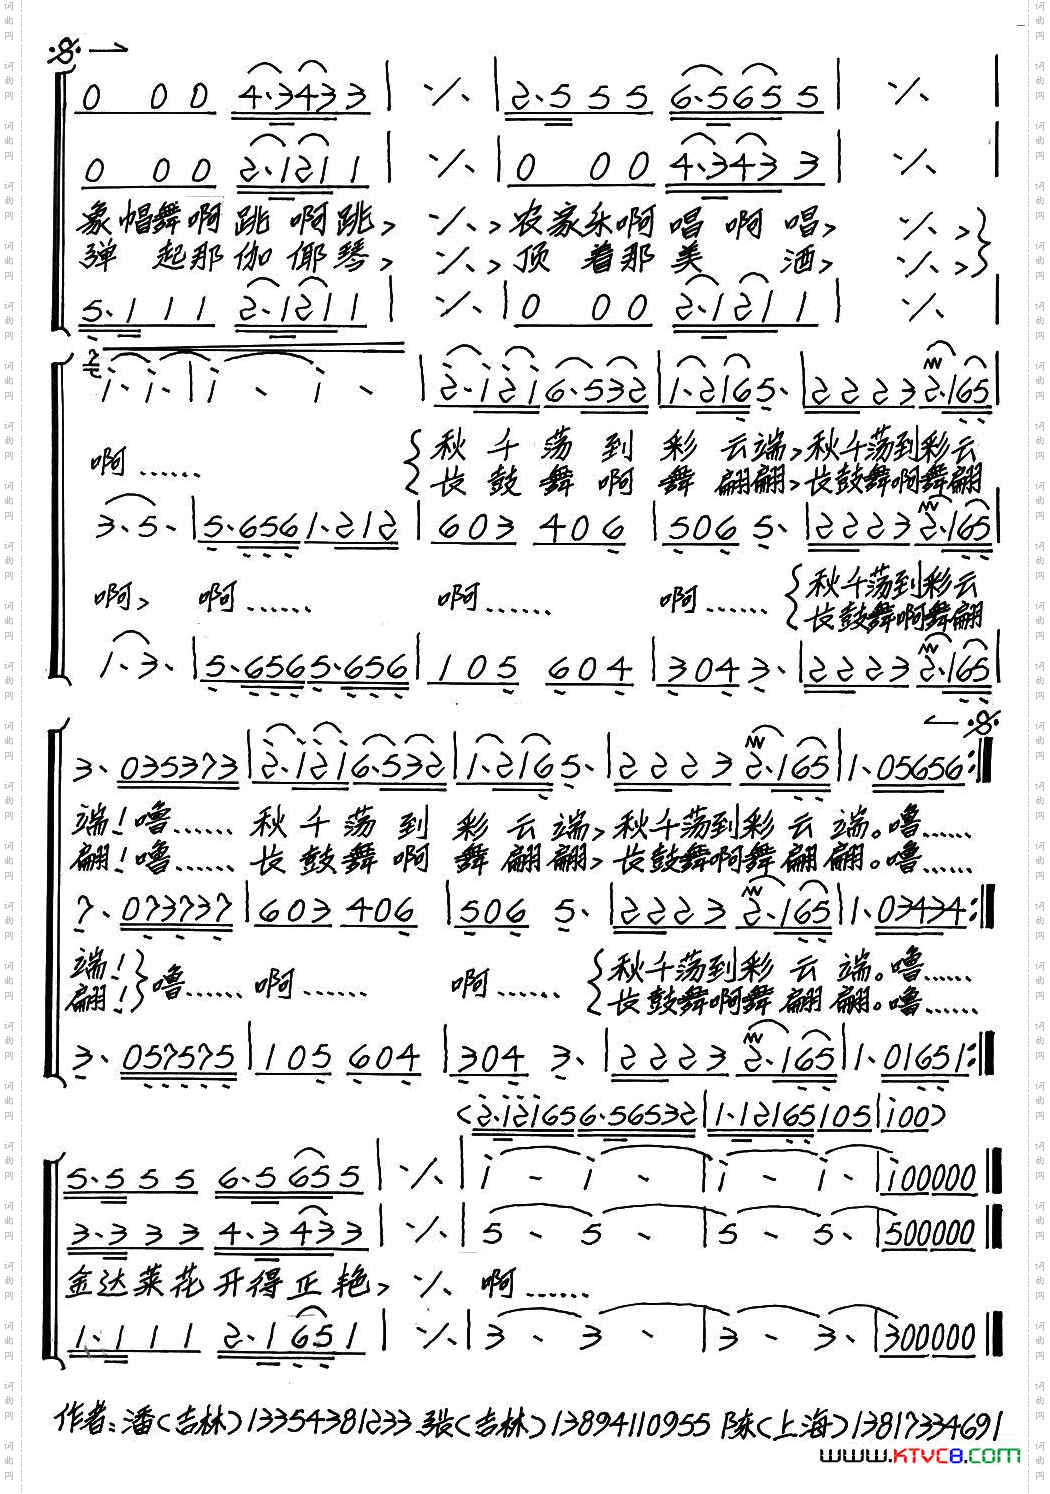 0 0 0 4·3 4 3 3 | ٪ | 2·5 5 5 6·5 6 5 5 | ٪ |
0 0 0 2·1 2 1 1 | ٪ | 0 0 0 4·3 4 3 3 | ٪ |
象帽舞啊 跳 啊跳, ٪, 农家乐啊 唱 啊 唱, ٪,
弹 起那 伽 倻琴, ٪, 顶 着那 美 酒, ٪,
5·1 1 1 2·1 2 1 1 | ٪ | 0 0 0 2·1 2 1 1 | ٪ |
i· i· | i - i - | 2·1 2 1 6·5 3 2 | 1·2 1 6 5· | 2 2 2 3 2·1 6 5 |
啊…… 秋 千 荡 到 彩 云端, 秋千荡到彩云
长 鼓 舞 啊 舞 翩翩, 长鼓舞啊舞翩
3· 5· | 5·6 5 6 1·2 1 2 | 6 0 3 4 0 6 | 5 0 6 5· | 2 2 2 3 2·1 6 5 |
啊, 啊…… 啊…… 啊…… 秋千荡到彩云
长鼓舞啊舞翩
1· 3· | 5·6 5 6 5·6 5 6 | 1 0 5 6 0 4 | 3 0 4 3· | 2 2 2 3 2·1 6 5 |
3· 0 3 5 3 7 3 | 2·1 2 1 6·5 3 2 | 1·2 1 6 5· | 2 2 2 3 2·1 6 5 | 1· 0 5 6 5 6 :|
端!噜…… 秋 千 荡 到 彩 云 端, 秋千荡到彩 云 端。噜……
翩!噜…… 长 鼓 舞 啊 舞 翩 翩, 长鼓舞啊舞 翩 翩。噜……
7· 0 7 3 7 3 7 | 6 0 3 4 0 6 | 5 0 6 5· | 2 2 2 3 2·1 6 5 | 1· 0 3 4 3 4 :|
端! 噜…… 啊…… 啊…… 秋千荡到彩 云 端。噜……
翩! 长鼓舞啊舞 翩 翩。噜……
3· 0 5 7 5 7 5 | 1 0 5 6 0 4 | 3 0 4 3· | 2 2 2 3 2·1 6 5 | 1· 0 1 6 5 1 :|
(2·1 2 1 6 5 6·5 6 5 3 2 | 1·1 2 1 6 5 1 0 5 | i 0 0)
5·5 5 5 6·5 6 5 5 | ٪ | i - i - | i - i· | i 0 0 0 0 0 ‖
3·3 3 3 4·3 4 3 3 | ٪ | 5 - 5 - | 5 - 5· | 5 0 0 0 0 0 ‖
金达莱花 开得正艳, ٪ 啊……
1·1 1 1 2·1 6 5 1 | ٪ | 3 - 3 - | 3 - 3· | 3 0 0 0 0 0 ‖
作者:潘(吉林)13354381233 张(吉林)13894110955 陈(上海)13817334691
www.KTVC8.com